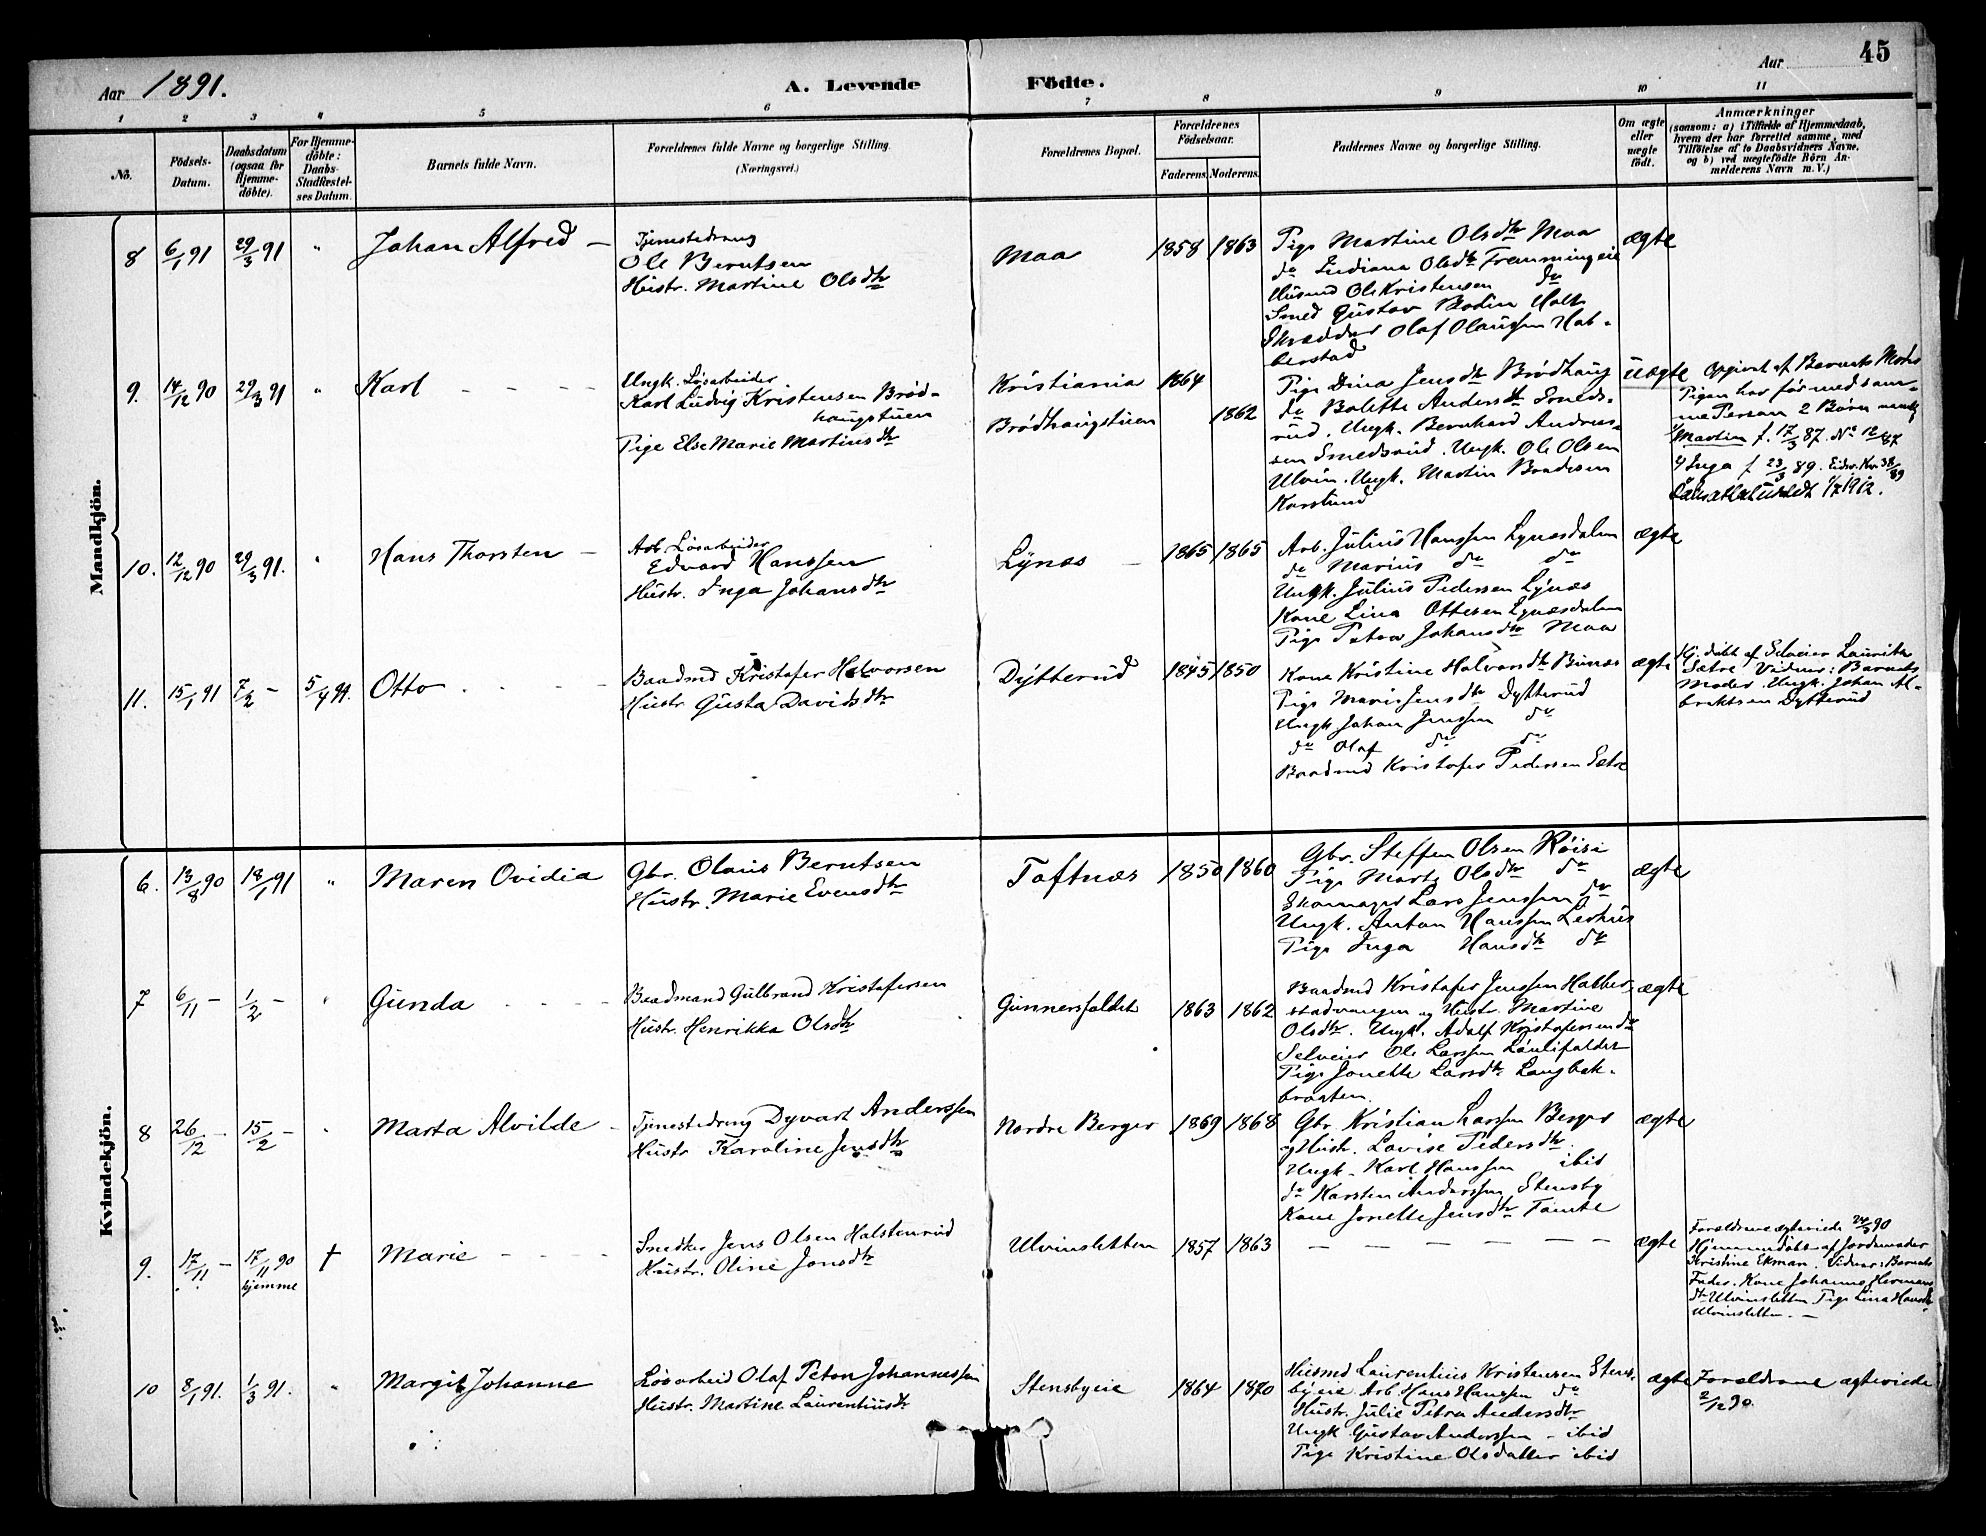 45
Aar 1891. A. Levende Födte. Aar
1 2 3 4 5 6 7 8 9 10 11
No.
Födsels-Datum.
Daabsdatum (ogsaa for Hjemme-döbte).
For Hjemme-döbte: Daabs-Stadfæstel-ses Datum.
Barnets fulde Navn.
Forældrenes fulde Navne og borgerlige Stilling.
(Næringsvei.)
Forældrenes Bopæl.
Forældrenes Födselsaar.
Faderens. Moderens.
Faddernes Navne og borgerlige Stilling.
Om ægte eller uægte födt.
Anmærkninger
(saasom: a) i Tilfælde af Hjemmedaab,
hvem der har forrettet samme, med
Tilföielse af to Daabsvidners Navne,
og b) ved uægtefödte Börn An-
melderens Navn m. V.)
Mandkjön.
8 6/1 91 29/3 91 " Johan Alfred —
Tjenestedreng
Ole Berntsen
Hustr. Martine Olsdtr
Maa 1858 1863
Pige Martine Olsdtr Maa
do Indiana Olsdtr Fremmingeie
Husmd Ole Kristensen do
Smed Gustav Bodin Holt
Skrædder Olaf Olaussen Hab-
berstad
ægte
9. 14/12 90 29/3 91 " Karl - - - -
Ungk. Løsarbeider
Karl Ludvig Kristensen Brød-
haugstuen
Pige Else Marie Martinsdtr
Kristiania 1864
Brødhaugstuen 1862
Pige Dina Jensdtr Brødhaug
do Bolette Andersdtr Smeds-
rud. Ungk. Bernhard Andreas-
sen Smedsrud. Ungk. Ole Olsen
Ulvin. Ungk. Martin Bredesen
Korslund
uægte
Opgivet af Barnets Moder
Pigen har før med sam-
me Person 2 Børn nemlig
1) Martin f. 17/3 87. No 12/87
2) Inga f 23/3 89. Eidsv. Kv. 38/89
10. 12/12 90 29/3 91. " Hans Thorsten —
Arb. Løsarbeider
Edvard Hanssen
Hustr. Inga Johansdtr
Lynæs — 1865 1865
Arb. Julius Hanssen Lynæsdalen
do Marius do do
Ungk. Julius Pedersen Lynæs
Kone Lina Ottesen Lynæsdalen
Pige Petra Johansdtr Maa
ægte
11. 15/1 91 7/2 - 5/4 91. Otto - - - -
Baadmd Kristofer Halvorsen
Hustr Gusta Davidsdtr
Dytterud 1845 1850
Kone Kristine Halvorsdtr Bunæs
Pige Marie Jensdtr Dytterud
Ungk Johan Jenssen do
do Olaf do do
Baadmd Kristofer Pedersen Sætre
ægte
Hj. døbt af Selveier Lauritz
Sætre Vidner: Barnets
Moder. Ungk. Johan Al-
brektsen Dytterud
Kvindekjön.
6. 13/8 90 18/1 91 " Maren Ovidia
Gbr. Olaus Berntsen
Hustr. Marie Evensdtr
Toftnæs 1850 1860
Gbr. Steffen Olsen Røisi
Pige Marte Olsdtr do
Skomager Lars Jenssen do
Ungk. Anton Hanssen Lerhus
Pige Inga Hansdtr do
ægte
7 6/11 - 1/2 - " Gunda - - - -
Baadmand Gulbrand Kristofersen
Hustr. Henrikka Olsdtr
Gunnersfaldet 1863 1862
Baadmd Kristofer Jenssen Habber-
stadvangen og Hustr. Martine
Olsdtr. Ungk. Adolf Kristofersen do
Selveier Ole Larssen Laulifaldet
Pige Jonette Larsdtr Langbak-
braaten.
ægte
8 26/12 - 15/2 - " Marta Alvilde -
Tjenestedreng Dyvart Anderssen
Hustr Karoline Jensdtr
Nordre Berger 1869 1868
Gbr. Kristian Larssen Berger
og Hustr. Lovise Pedersdtr.
Ungk. Karl Hanssen ibid
do Karsten Anderssen Stensby
Kone Jonette Jensdtr Tomte
ægte
9. 17/11 - 17/11 90 hjemme † Marie - - - -
Snedker Jens Olsen Halstenrud
Hustr. Oline Jonsdtr
Ulvinsletten 1857 1863
— — — — — — —
ægte
Forældrene ægteviede 24/3 90
Hjemmedøbt af Jordemoder
Kristine Ekman. Vidner: Barnets
Fader. Kone Johanne Hermans-
dtr Ulvinsletten Pige Lina Hansdtr
Ulvinsletten. —
10 8/1 91. 1/3 91. " Margit Johanne
Løsarbeid Olaf Peton Johannessen
Hustr. Martine Laurentiusdtr
Stensbyeie 1864 1870
Husmd Laurentius Kristensen Stens-
byeie Arb. Hans Hanssen do
Hustr. Julie Petra Andersdtr
Ungk Gustav Anderssen - ibid
Pige Kristine Olsdatter ibid
ægte
Forældrene ægteviede
2/12 90.